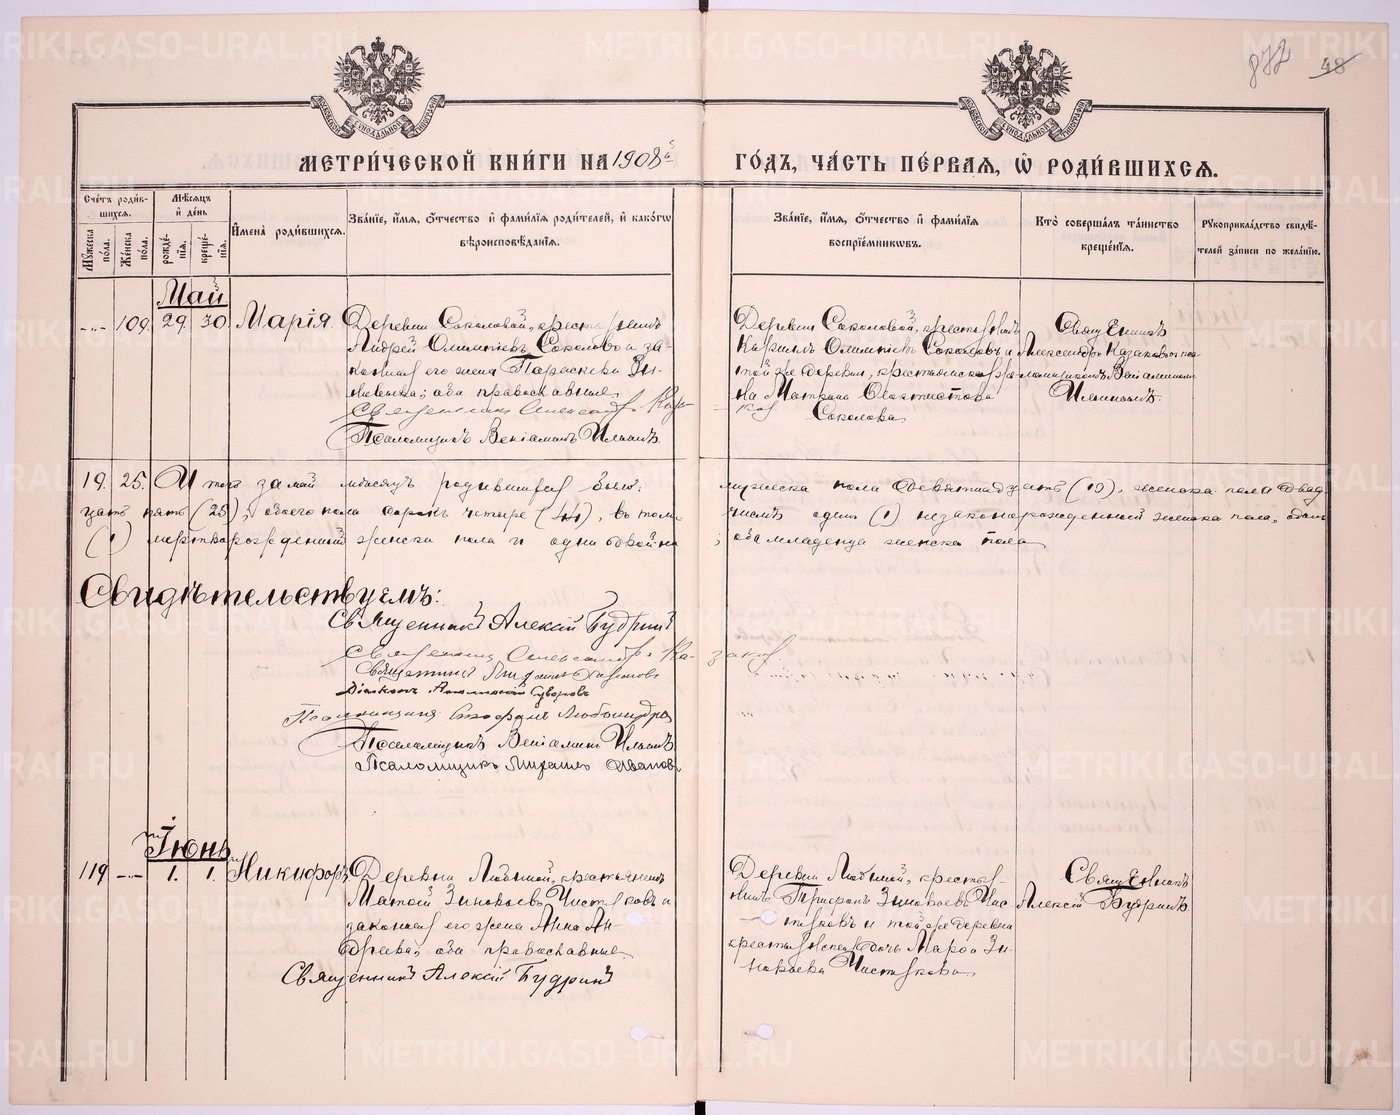 872 48
МЕТРИ́ЧЕСКОЙ КНИ́ГИ НА 1908й
ГО́ДЪ, ЧА́СТЬ ПЕ́РВАЯ, Ѿ РОДИ́ВШИХСЯ.
Сче́тъ роди́вшихся.
Му́жеска по́ла.
Же́нска по́ла.
Мѣ́сяцъ и́ де́нь
рожде́нія.
креще́нія.
И҆мена̀ роди́вшихся.
Зва́ніе, и҆́мя, ѻ҆́тчество и҆ фами́лїя роди́телей, и҆ како́гѡ
вѣроисповѣ́данїя.
Зва́нїе, и҆́мя, ѻ҆́тчество и҆ фами́лїя
воспрїе́мникѡвъ.
Кто̀ соверша́лъ та́инство
креще́нїя.
Рукоприкла́дство свидѣ́-
телей за́писи по жела́нїю.
Май
-"- 109. 29. 30. Марія.
Деревни Соколовой, крестьянинъ
Андрей Олимпіевъ Соколовъ и за-
конная его жена Параскева Зи-
новьева; оба православные.
Священникъ Александръ Каза-
ков
Псаломщикъ Веніаминъ Ильинъ
Деревни Соколовой, крестьянинъ
Кириллъ Олимпіевъ Соколовъ и
той же деревни, крестьянская же-
на Матрона
Соколова
Священникъ
Александръ Казаковъ съ пса-
ломщикомъ Веніаминомъ
Ильинымъ.
19. 25. Итого за май мѣсяцъ родившихся было: мужеска пола девятнадцать (19), женска пола двад-
цать пять (25), обоего пола сорокъ четыре (44), въ томъ числѣ одинъ (1) незаконорожденный женска пола, одинъ
(1) мертворожденный женска пола и одни двойни; оба младенца женска пола
Свидѣтельствуемъ:
Священникъ Алексій Будринъ
Священникъ Александръ Казаков
Священникъ
Діаконъ Суворовъ
Псаломщикъ Стефанъ Любомудровъ
Псаломщикъ Веніаминъ Ильинъ
Псаломщикъ Ивановъ
Іюнь
119 -"- 1. 1. Никифоръ
Деревни крестьянинъ
Матѳій Зиновьевъ Чистяковъ и
законная его жена Анна Ан-
дреева; оба православные.
Священникъ Алексій Будринъ
Деревни крестья-
нинъ Трифонъ Зиновьевъ Чис-
тяковъ и той же деревни
крестьянская дочь Марѳа Зи-
новьева Чистякова
Священникъ
Алексій Будринъ.
METRIKI.GASO-URAL.RU